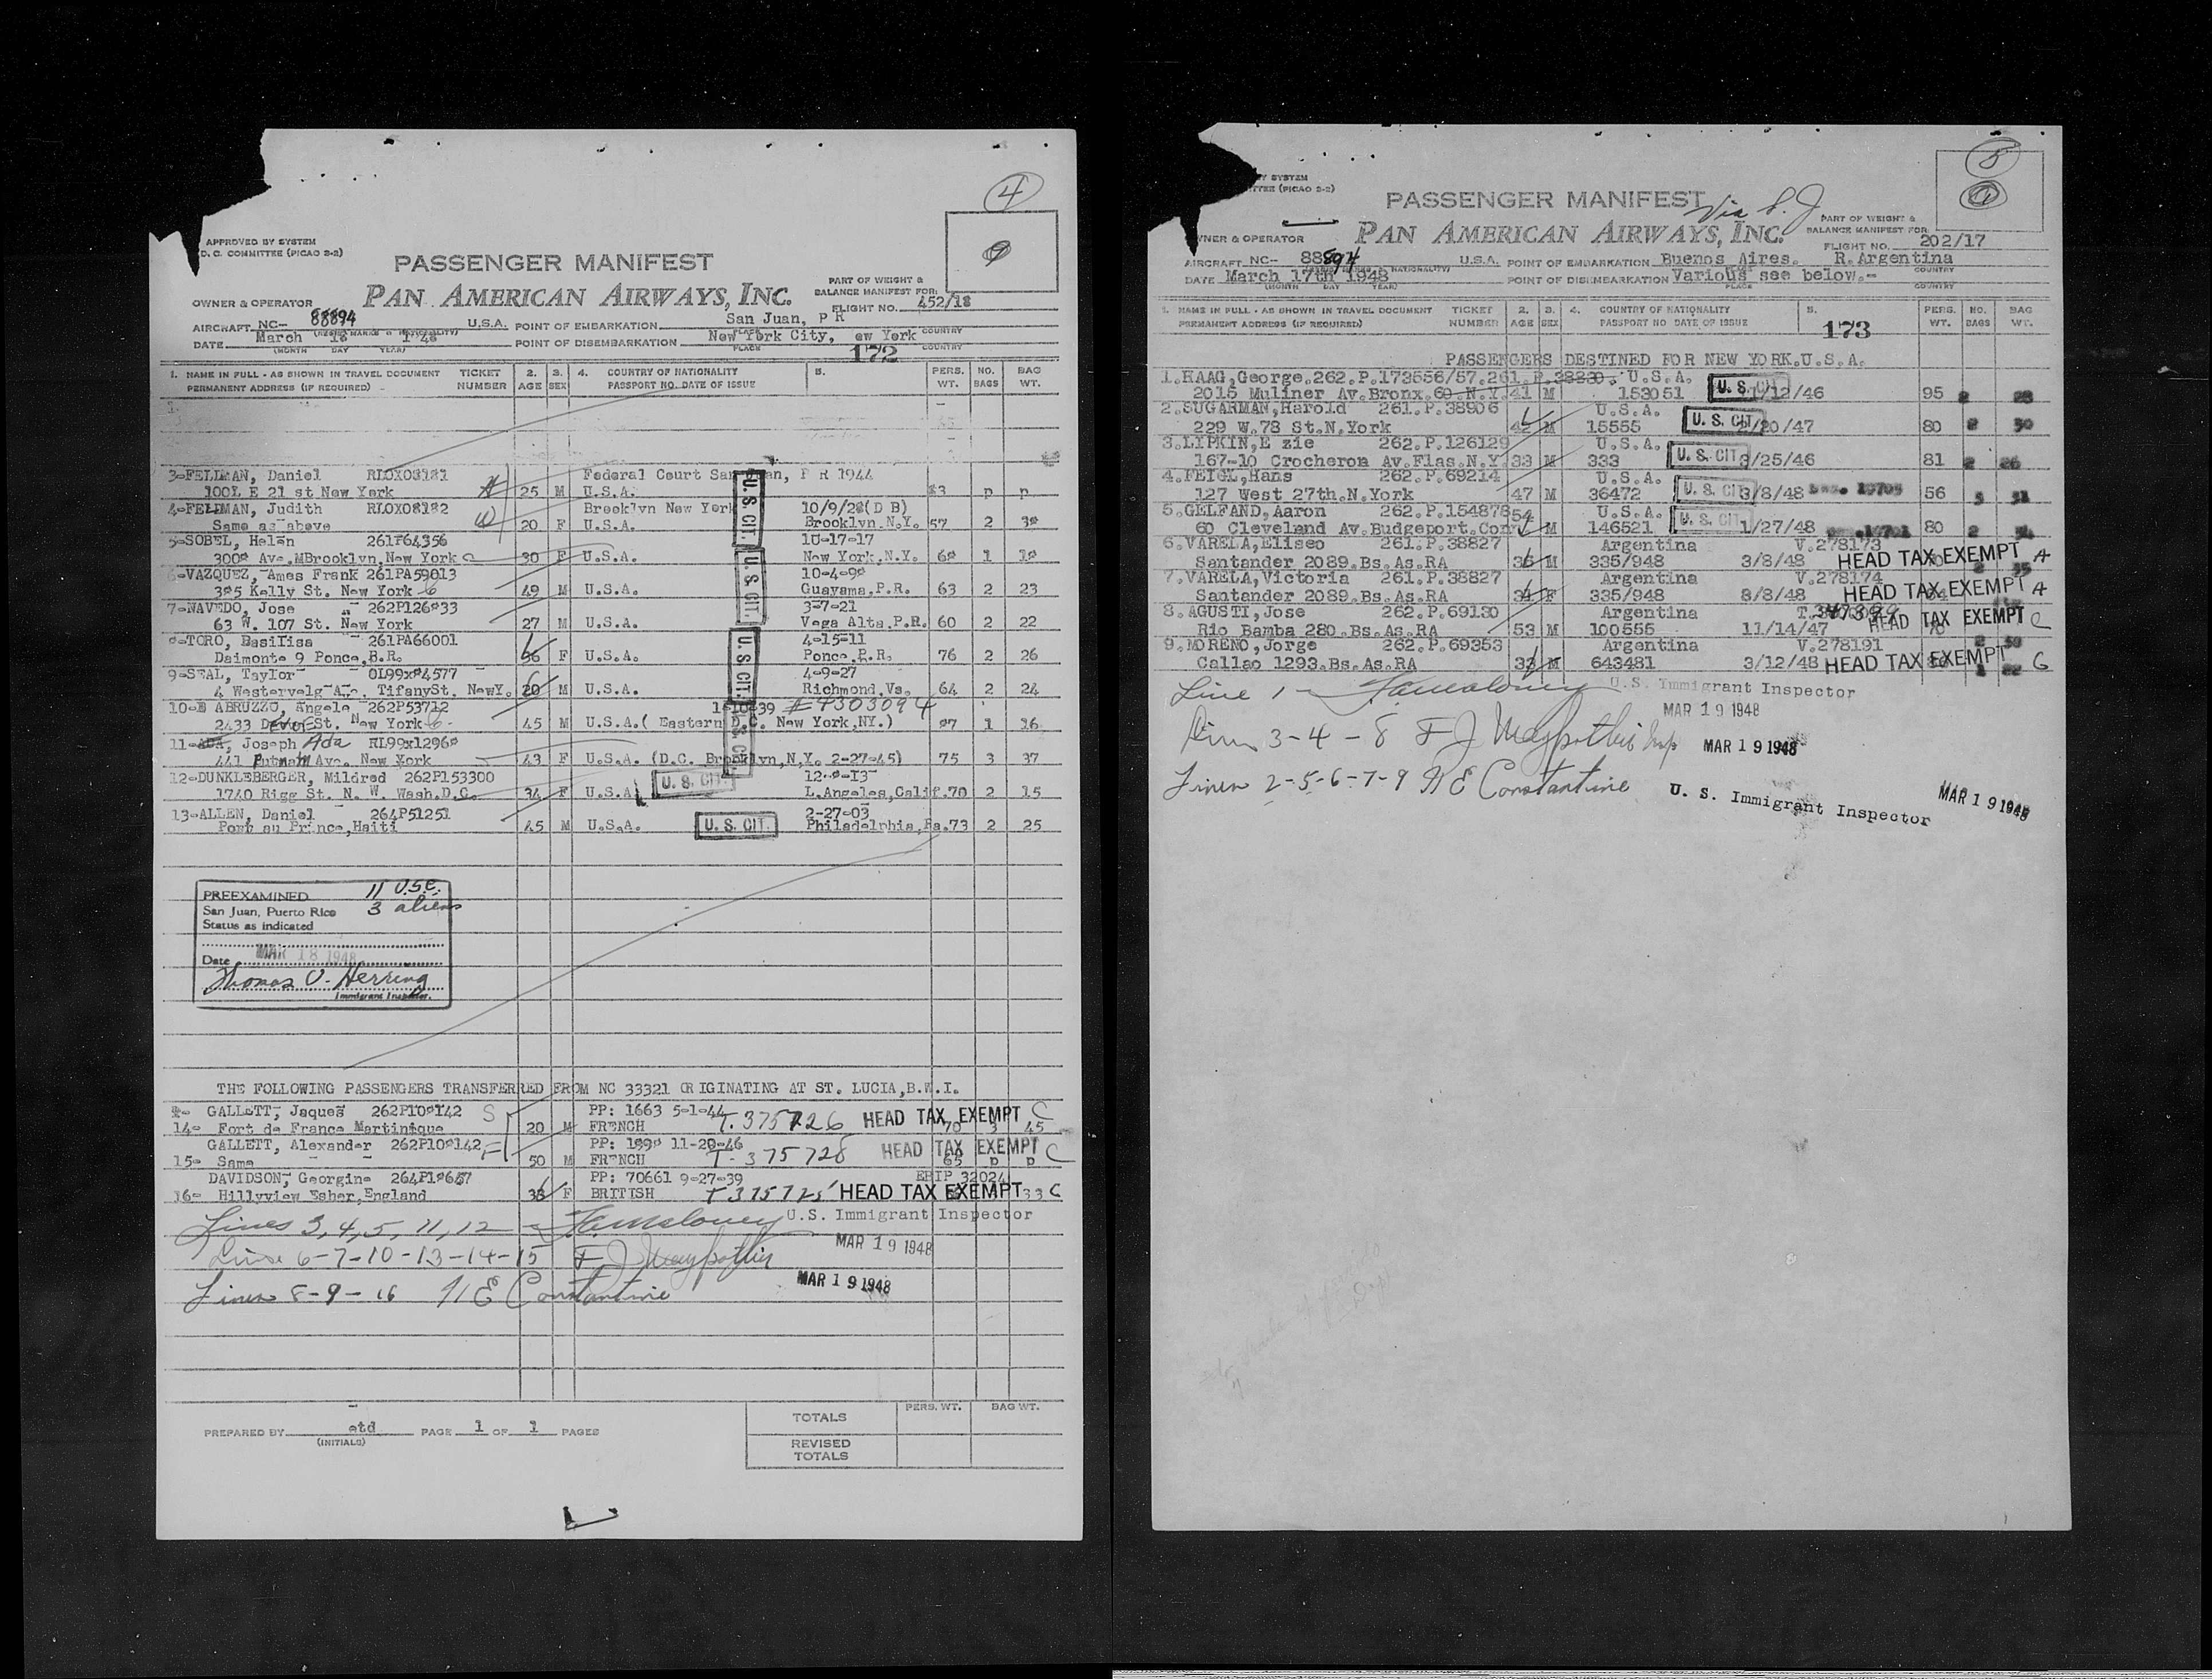 4
9
APPROVED BY SYSTEM
D. C. COMMITTEE (PICAO 2-2)
PASSENGER MANIFEST
PART OF WEIGHT &
BALANCE MANIFEST FOR:
OWNER & OPERATOR PAN AMERICAN AIRWAYS, INC. FLIGHT NO. 452/18
AIRCRAFT NC- 88894 U.S.A. POINT OF EMBARKATION San Juan, P R
DATE March 18 1948 POINT OF DISEMBARKATION New York City, ew York
(MONTH DAY YEAR) PLACE COUNTRY
172
1. NAME IN FULL - AS SHOWN IN TRAVEL DOCUMENT TICKET 2. 3. 4. COUNTRY OF NATIONALITY 5. PERS. NO. BAG
PERMANENT ADDRESS (IF REQUIRED) NUMBER AGE SEX PASSPORT NO. DATE OF ISSUE WT. BAGS WT.
3-FELLMAN, Daniel Federal Court San Juan, P R 1944
E 21 st New York 25 M U.S.A. p p
4-FELLMAN, Judith Brooklyn New York (D B)
Same as above 20 F U.S.A. Brooklyn.N.Y. 57 2
5-SOBEL, Helen 261P64356 10-17-17
Brooklyn, New York 30 F U.S.A. New York.N.Y. 1
VAZQUEZ, Ames Frank 261PA59013
Kelly St. New York 49 M U.S.A. Guayama,P.R. 63 2 23
7-NAVEDO, Jose 3-7-21
63 W. 107 St. New York 27 M U.S.A. Vega Alta.P.R. 60 2 22
TORO, Basilisa 261PA66001 4-15-11
9 Ponce, 36 F U.S.A. Ponce.P.R. 76 2 26
9-SEAL, Taylor 4-9-27
20 M U.S.A. Richmond.Va. 64 2 24
ABRUZZO, Angelo 262P53712
2433 St. New York 45 M U.S.A.( Eastern D.C. New York,NY.) 1 16
11- Joseph Ada
441 Putnam Ave. New York 43 F U.S.A. (D.C. Brooklyn,N,Y. 2-27-45) 75 3 37
12-DUNKLEBERGER, Mildred 262P153300
1740 Rigg St. N. W. Wash.D.C. 34 F U.S.A. U. S. CIT. L.Angeles,Calif.70 2 15
13-ALLEN, Daniel 264P51251 2-27-03
Port au Prince,Haiti 45 M U.S.A. U. S. CIT. Philadelphia,Pa.73 2 25
U. S. CIT.
U. S. CIT.
U. S. CIT.
PREEXAMINED 11 U.S.C.
San Juan, Puerto Rico 3 aliens
Status as indicated
Date MAR 18 1948
Thomas V. Herring
Immigrant Inspector.
THE FOLLOWING PASSENGERS TRANSFERRED FROM NC 33321 ORIGINATING AT ST. LUCIA,B.W.I.
GALLETT, Jaques PP: 1663 5-1-44 T. 375726 HEAD TAX EXEMPT C
14- Fort de France Martinique 20 M FRENCH 70 3 45
GALLETT, Alexander PP: 11-20-46 T- 375728 HEAD TAX EXEMPT C
15- Same 50 M FRENCH 65 p p
DAVIDSON, Georgine PP: 70661 9-27-39 32024
16- Hillyview Esher,England F BRITISH T 375725 HEAD TAX EXEMPT 33 C
Lines 3, 4, 5, 11, 12 - U.S. Immigrant Inspector
Line 6-7-10-13-14-15 F J MAR 19 1948
Lines 8-9-16 H E Constantine MAR 19 1948
PREPARED BY etd PAGE 1 OF 1 PAGES
(INITIALS)
PERS. WT. BAG WT.
TOTALS
REVISED
TOTALS
5
BY SYSTEM
(PICAO 2-2)
PASSENGER MANIFEST Via S. J
PART OF WEIGHT &
BALANCE MANIFEST FOR:
OWNER & OPERATOR PAN AMERICAN AIRWAYS, INC. FLIGHT NO. 202/17
AIRCRAFT NC- 88894 U.S.A. POINT OF EMBARKATION Buenos Aires. R.Argentina
DATE March 17th 1948 POINT OF DISEMBARKATION Various see below.-
(MONTH DAY YEAR) PLACE COUNTRY
1. NAME IN FULL - AS SHOWN IN TRAVEL DOCUMENT TICKET 2. 3. 4. COUNTRY OF NATIONALITY 5. PERS. NO. BAG
PERMANENT ADDRESS (IF REQUIRED) NUMBER AGE SEX PASSPORT NO DATE OF ISSUE WT. BAGS WT.
173
PASSENGERS DESTINED FOR NEW YORK.U.S.A.
1.HAAG,George.262.P.173556/57.261.P.38820. U.S.A.
2015 Muliner Av.Bronx.60.N.Y. 41 M 153051 U. S. CIT /12/46 95 2 28
2.SUGARMAN,Harold 261.P.38906 U.S.A.
229 W.78 St.N.York M 15555 U. S. CIT /20/47 80 2 30
3.LIPKIN,E zie 262.P.126129 U.S.A.
167-10 Crocheron Av.Flas.N.Y. 33 M 333 U. S. CIT. /25/46 81 2 26
4.FEIGL,Hans 262.P.69214 U.S.A.
127 West 27th.N.York 47 M 36472 U. S. CIT 3/8/48 56 3 31
5.GELFAND,Aaron 262.P.154878 U.S.A.
60 Cleveland Av.Budgeport.Conn M 146521 U. S. CIT 1/27/48 80 2
6.VARELA,Eliseo 261.P.38827 Argentina V.278173
Santander 2089.Bs.As.RA 36 M 335/948 3/8/48 HEAD TAX EXEMPT A
7.VARELA,Victoria 261.P.38827 Argentina V.278174
Santander 2089.Bs.As.RA 34 F 335/948 8/8/48 HEAD TAX EXEMPT A
8.AGUSTI,Jose 262.P.69130 Argentina
Rio Bamba 280.Bs.As.RA 53 M 100555 11/14/47 HEAD TAX EXEMPT C
9.MORENO,Jorge 262.P.69353 Argentina V.278191
Callao 1293.Bs.As.RA M 643481 3/12/48 HEAD TAX EXEMPT C
Line 1 - U.S. Immigrant Inspector
MAR 19 1948
Lines 3-4-8 F J MAR 19 1948
Lines 2-5-6-7-9 H E Constantine U. S. Immigrant Inspector MAR 19 1948